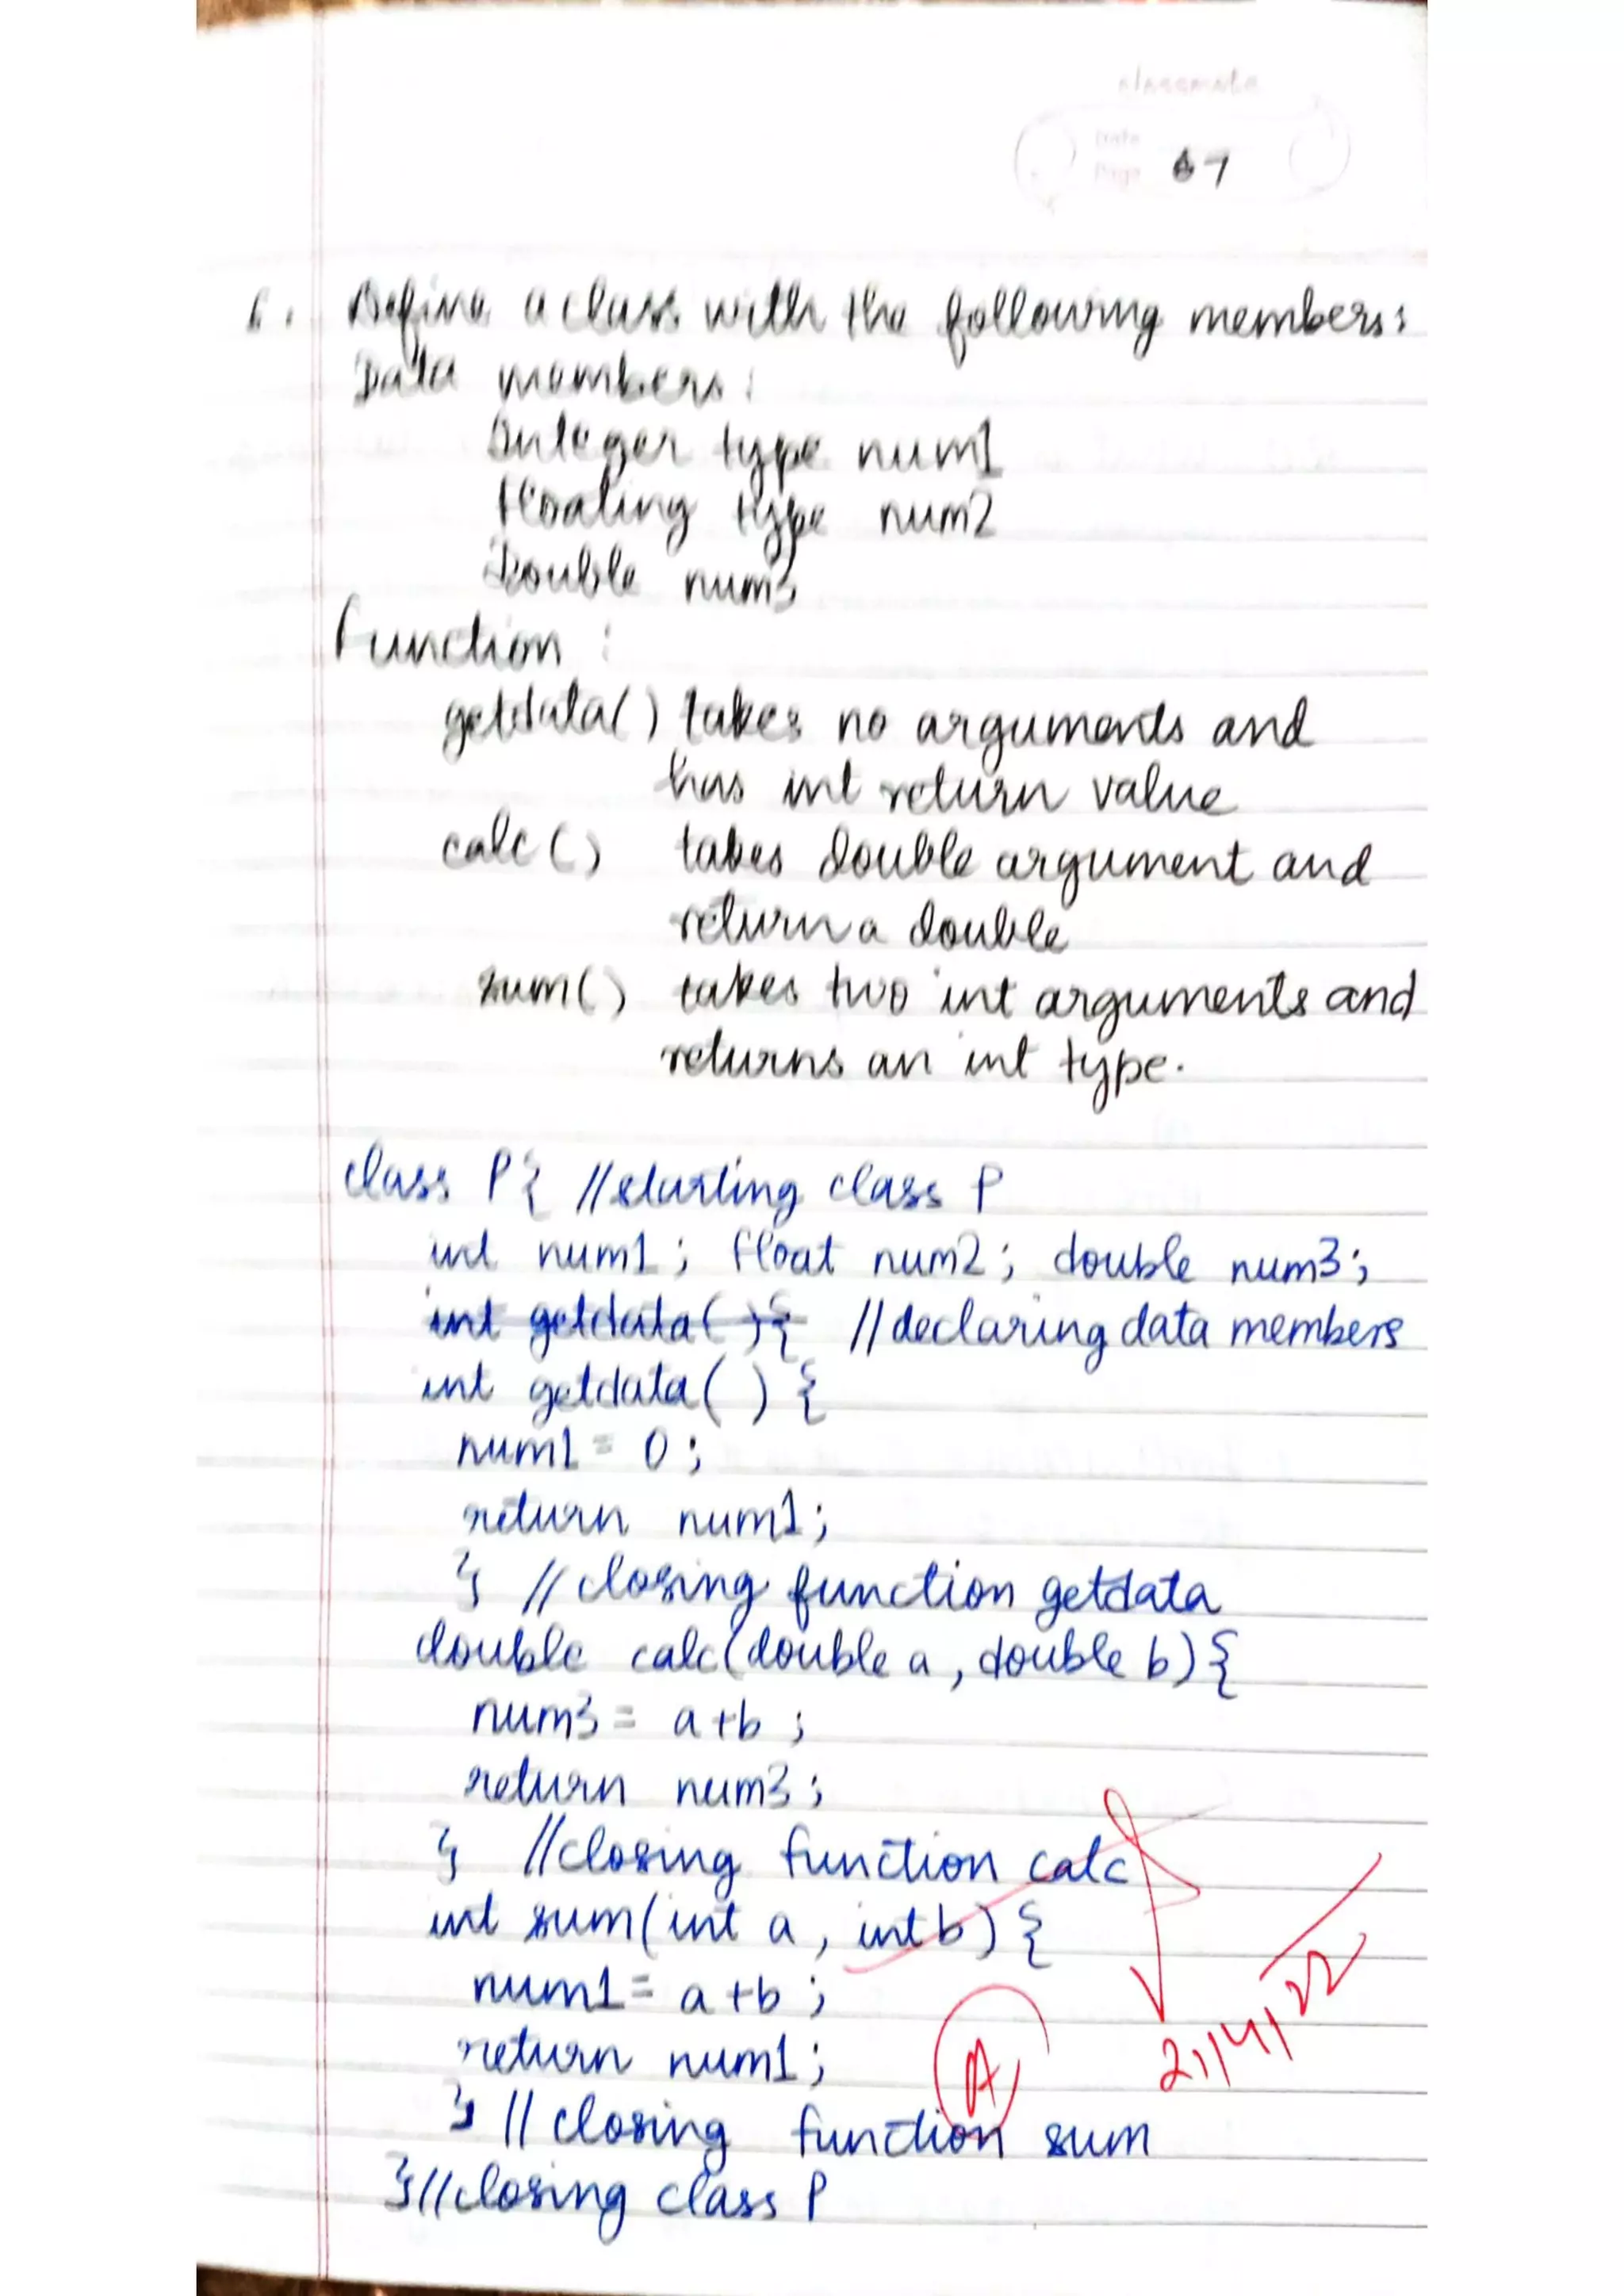 classmate
Date
Page 67
6. Define a class with the following members:
Data members:
Integer type num1
floating type num2
Double num3
Function :
getdata() takes no arguments and
has int return value
calc() takes double argument and
return a double
sum() takes two int arguments and
returns an int type.
class P{ //starting class P
int num1; float num2; double num3;
int getdata(){ //declaring data members
int getdata() {
num1 = 0;
return num1;
} // closing function getdata
double calc(double a, double b){
num3 = a+b;
return num3;
} //closing function calc
int sum(int a, int b) {
num1 = a+b;
return num1;
} // closing function sum
A
21/4/22
}//closing class P